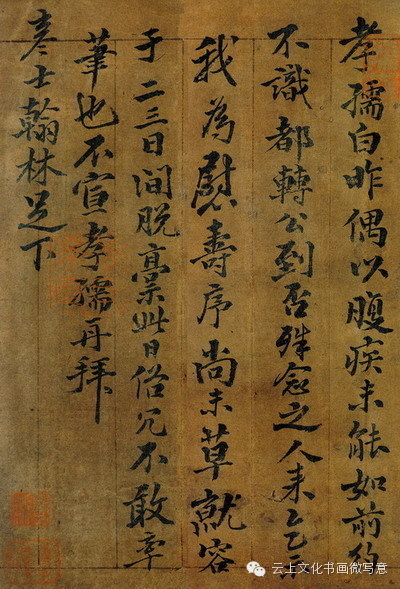 孝孺白昨偶以腹疾未能如前约
不識都轉公到否殊念之人来乞示
我為慰壽序尚未草就容
于二三日间脱藁此日俗冗不敢率
筆也不宣孝孺再拜
彦士翰林足下
云上文化书画微写意